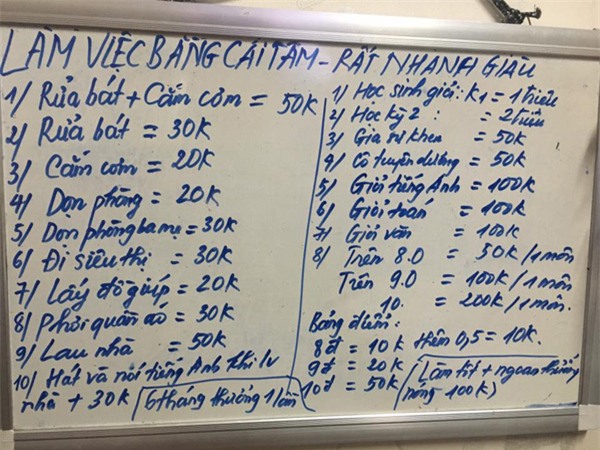 LÀM VIỆC BẰNG CÁI TÂM - RẤT NHANH GIÀU
1/ Rửa bát + Cắm cơm = 50K
2/ Rửa bát = 30K
3/ Cắm cơm = 20K
4/ Dọn phòng = 20K
5/ Dọn phòng ba mẹ = 30K
6/ Đi siêu thị = 30K
7/ Lấy đồ giúp = 20K
8/ Phơi quần áo = 30K
9/ Lau nhà = 50K
10/ Hát và nói tiếng Anh khi lv
nhà + 30K
6 tháng thưởng 1 lần
1/ Học sinh giỏi: K1 = 1 triệu
2/ Học kỳ 2 : = 2 triệu
3/ Gia sư khen = 50K
4/ Cô tuyên dương = 50K
5/ Giỏi tiếng Anh = 100K
6/ Giỏi toán = 100K
7/ Giỏi văn = 100K
8/ Trên 8.0 = 50K / 1 môn
Trên 9.0 = 100K / 1 môn
10. = 200K / 1 môn.
Bảng điểm:
8đ = 10K thêm 0,5 = 10K.
9đ = 20K
10đ = 50K
(Làm tốt + ngoan thưởng
nóng 100K)